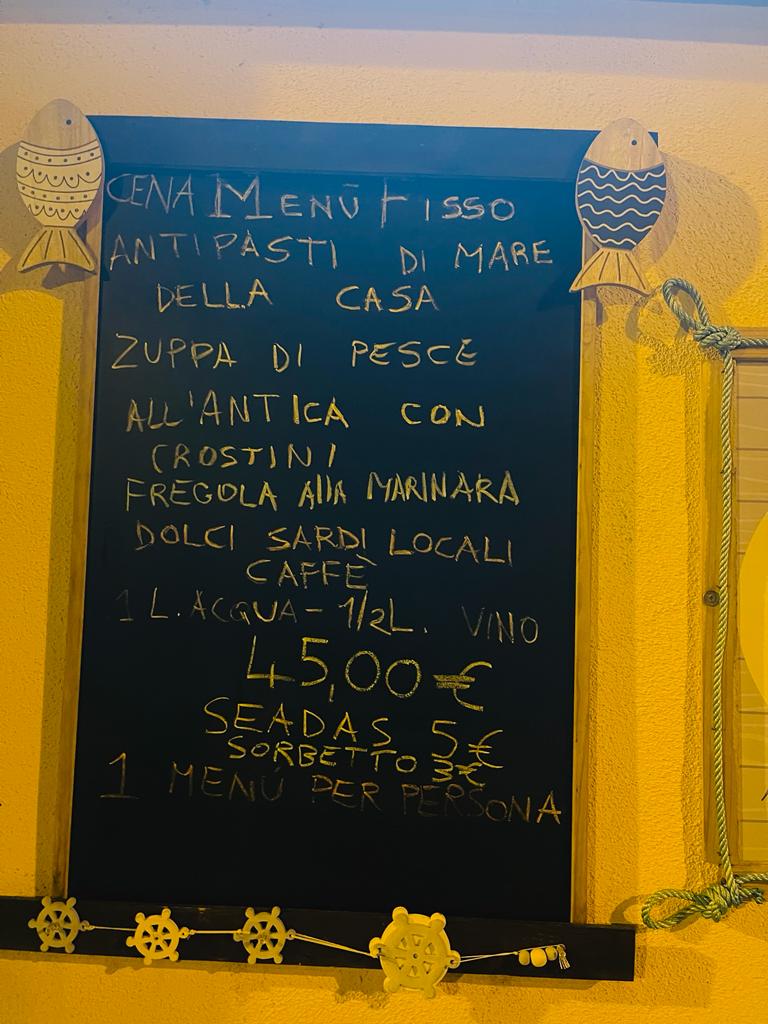 CENA MENÙ FISSO
ANTIPASTI DI MARE
DELLA CASA
ZUPPA DI PESCE
ALL'ANTICA CON
CROSTINI
FREGOLA AllA MARINARA
DOLCI SARDI LOCALI
CAFFÈ
1 L. ACQUA - 1/2 L. VINO
45,00 €
SEADAS 5€
SORBETTO 3€
1 MENÙ PER PERSONA